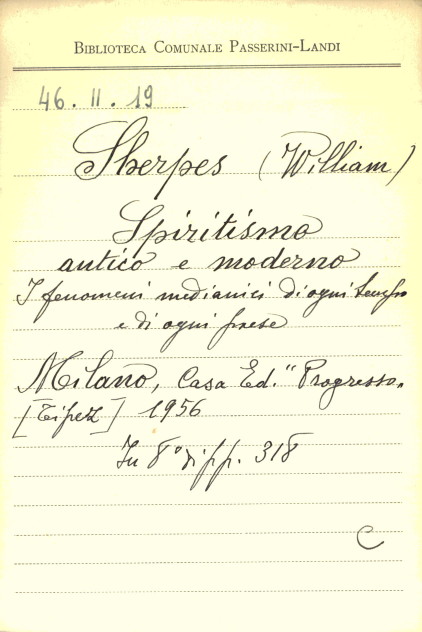 BIBLIOTECA COMUNALE PASSERINI-LANDI
46. II. 19
Sherpes (William)
Spiritismo
antico e moderno
I fenomeni medianici di ogni tempo
e di ogni paese
Milano, Casa Ed. "Progresso„
1956
In 8° di pp. 318
C